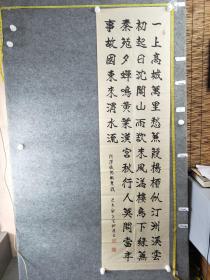 一上高城萬里愁蒹葭楊柳似汀洲溪雲
初起日沉閣山雨欲來風滿樓鳥下綠蕪
秦苑夕蟬鳴黃葉漢宮秋行人莫問當年
事故國東來渭水流